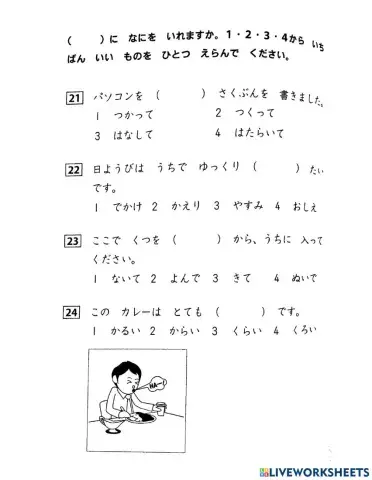 (　　　)に　なにを　いれますか。1・2・3・4から　いち
ばん　いい　ものを　ひとつ　えらんで　ください。
21　パソコンを　(　　　)　さくぶんを　書きました。
1　つかって　2　つくって
3　はなして　4　はたらいて
22　日ようびは　うちで　ゆっくり　(　　　)　たい
です。
1　でかけ　2　かえり　3　やすみ　4　おしえ
23　ここで　くつを　(　　　)　から、うちに　入って
ください。
1　ないて　2　よんで　3　きて　4　ぬいで
24　この　カレーは　とても　(　　　)　です。
1　かるい　2　からい　3　くらい　4　くろい
LIVEWORKSHEETS